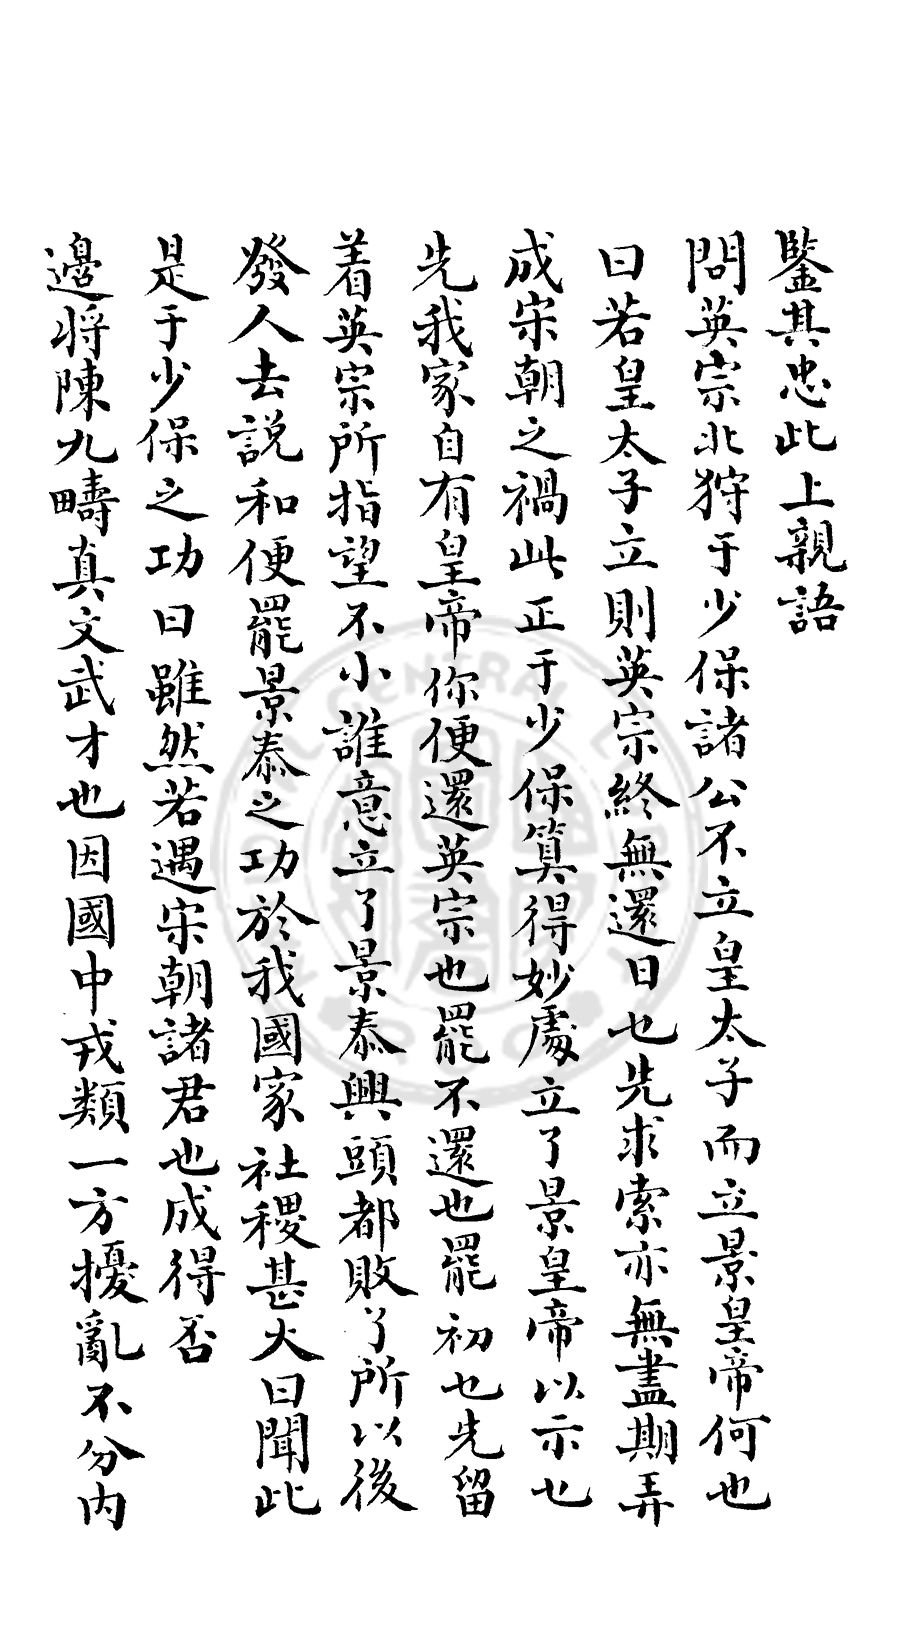 鑒其忠此上親語
問英宗北狩于少保諸公不立皇太子而立景皇帝何也
曰若皇太子立則英宗終無還日乜先求索亦無盡期弄
成宋朝之禍此正于少保算得妙處立了景皇帝以示乜
先我家自有皇帝你便還英宗也罷不還也罷初乜先留
着英宗所指望不小誰意立了景泰興頭都敗了所以後
發人去説和便罷景泰之功於我國家社稷甚大曰聞此
是于少保之功曰雖然若遇宋朝諸君也成得否
邊将陳九疇真文武才也因國中戎類一方擾亂不分内